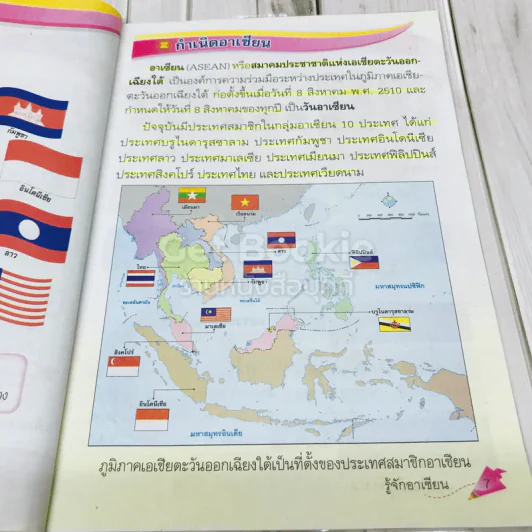 กำเนิดอาเซียน
อาเซียน (ASEAN) หรือสมาคมประชาชาติแห่งเอเชียตะวันออก-
เฉียงใต้ เป็นองค์การความร่วมมือระหว่างประเทศในภูมิภาคเอเชีย-
ตะวันออกเฉียงใต้ ก่อตั้งขึ้นเมื่อวันที่ 8 สิงหาคม พ.ศ. 2510 และ
กำหนดให้วันที่ 8 สิงหาคมของทุกปี เป็นวันอาเซียน
ปัจจุบันมีประเทศสมาชิกในกลุ่มอาเซียน 10 ประเทศ ได้แก่
ประเทศบรูไนดารุสซาลาม ประเทศกัมพูชา ประเทศอินโดนีเซีย
ประเทศลาว ประเทศมาเลเซีย ประเทศเมียนมา ประเทศฟิลิปปินส์
ประเทศสิงคโปร์ ประเทศไทย และประเทศเวียดนาม
กัมพูชา
อินโดนีเซีย
ลาว
เมียนมา
เวียดนาม
ลาว
ฟิลิปปินส์
Get Booki
ร้านหนังสือบุ๊คกี้
ไทย
กัมพูชา
มหาสมุทรแปซิฟิก
มาเลเซีย
บรูไนดารุสซาลาม
สิงคโปร์
อินโดนีเซีย
มหาสมุทรอินเดีย
ภูมิภาคเอเชียตะวันออกเฉียงใต้เป็นที่ตั้งของประเทศสมาชิกอาเซียน
รู้จักอาเซียน
7